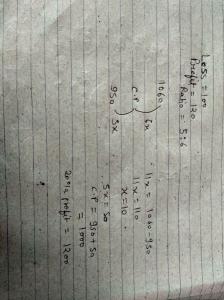 Less = 100
Profit = 120
Ratio = 5:6
1060
C.P } 6x
950 } 5x
11x = 1060-950
11x = 110
x = 10
5x = 50
C.P = 950+50
= 1000
20% profit = 1200